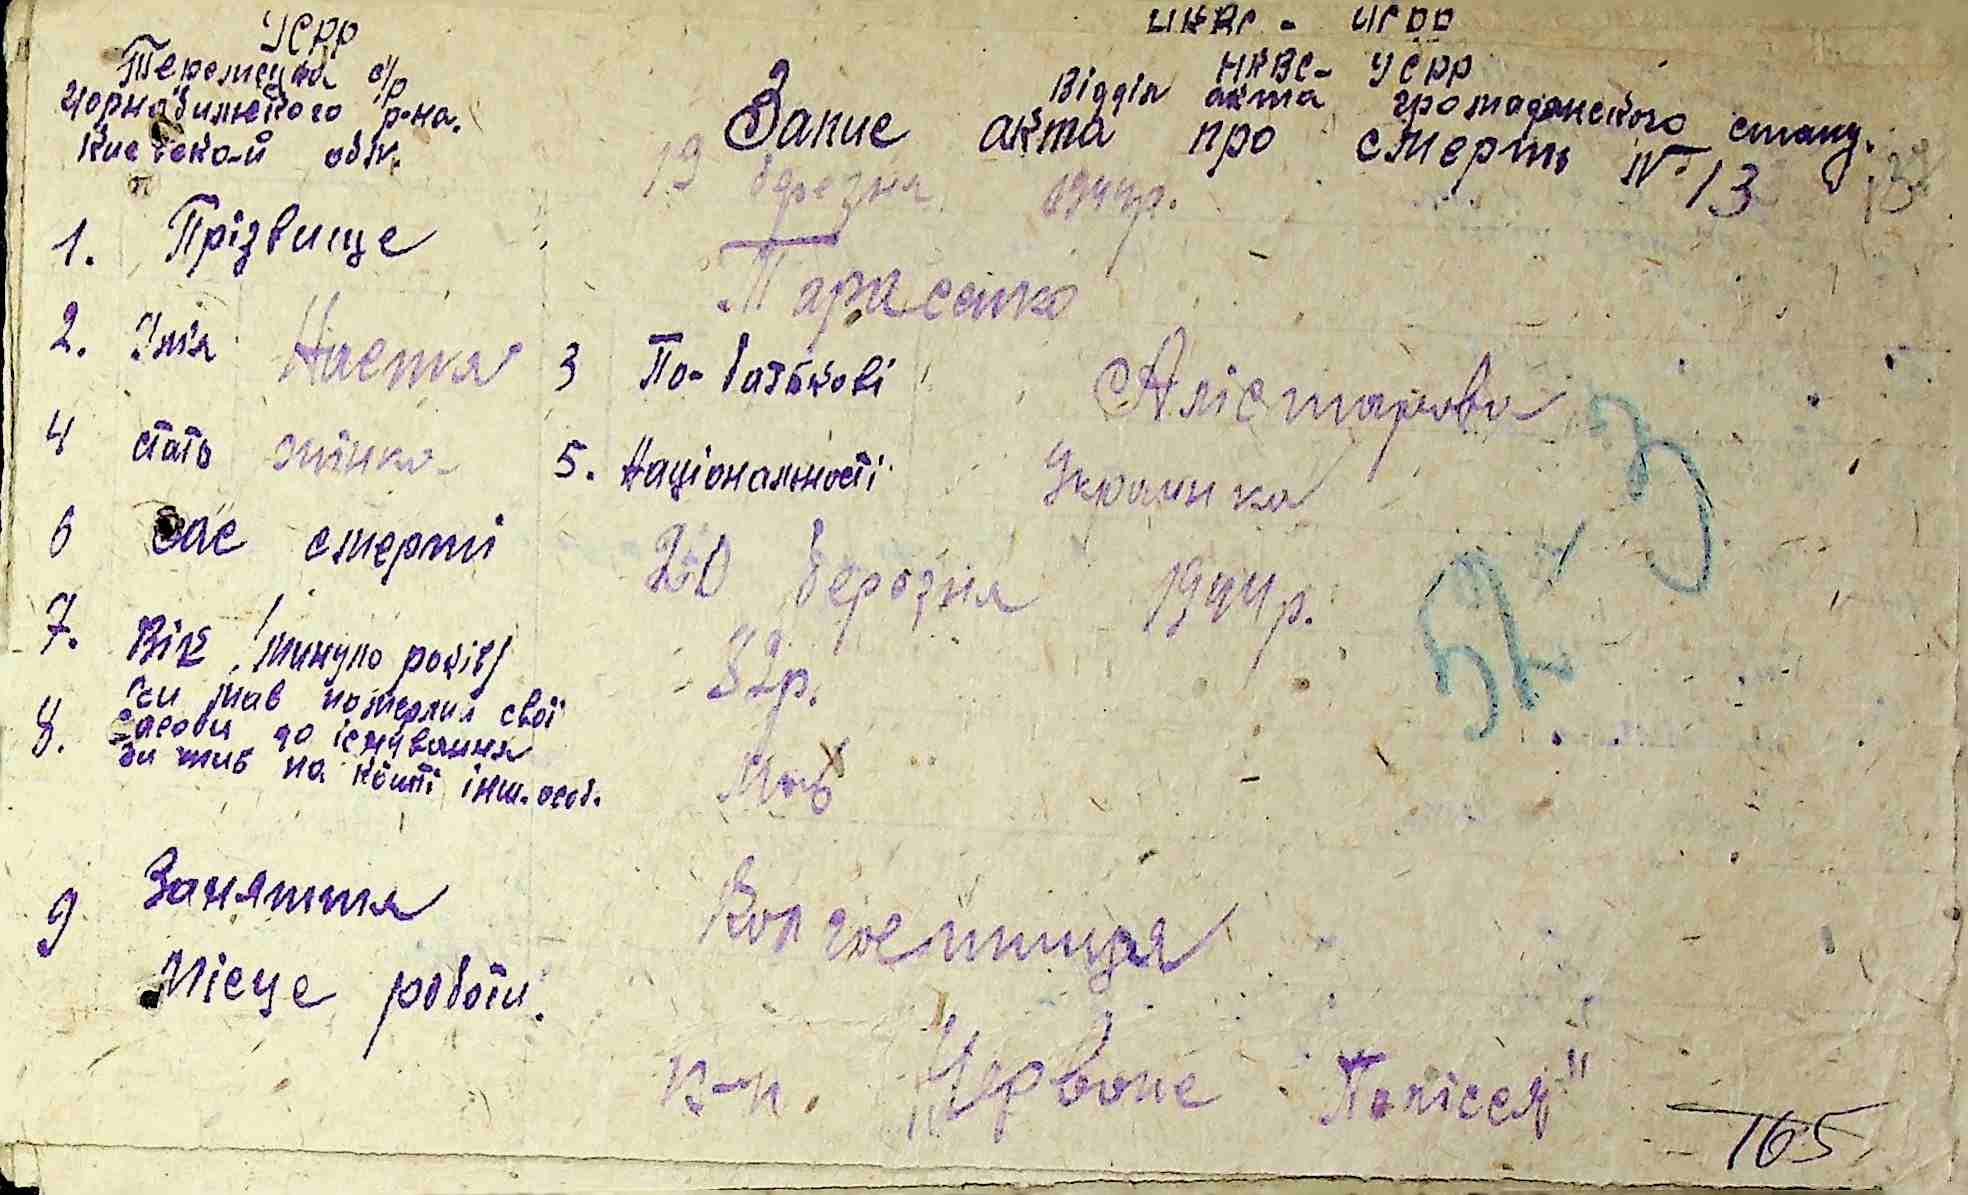 УСРР
НКВС - УСРР
Теремцька с/р
НКВС- УСРР
Чорнобильського р-на.
Відділ акта громадянського стану.
Київсько-й обл.
Запис акта про смерть № 13
19 березня 1944р.
1. Прізвище Тарасенко
2. Імя Настя 3 По-батькові Алістарова
4 стать жінка 5. Національності Українка
6 Час смерті 20 березня 1944р.
7. Вік /минуло років/ 32р.
8. Чи мав померлий свої
засоби до існування
чи жив на кошті інш. особ.
мав
9 Заняття Колгоспниця
Місце роботи.
к-п. "Червоне Полісся"
165